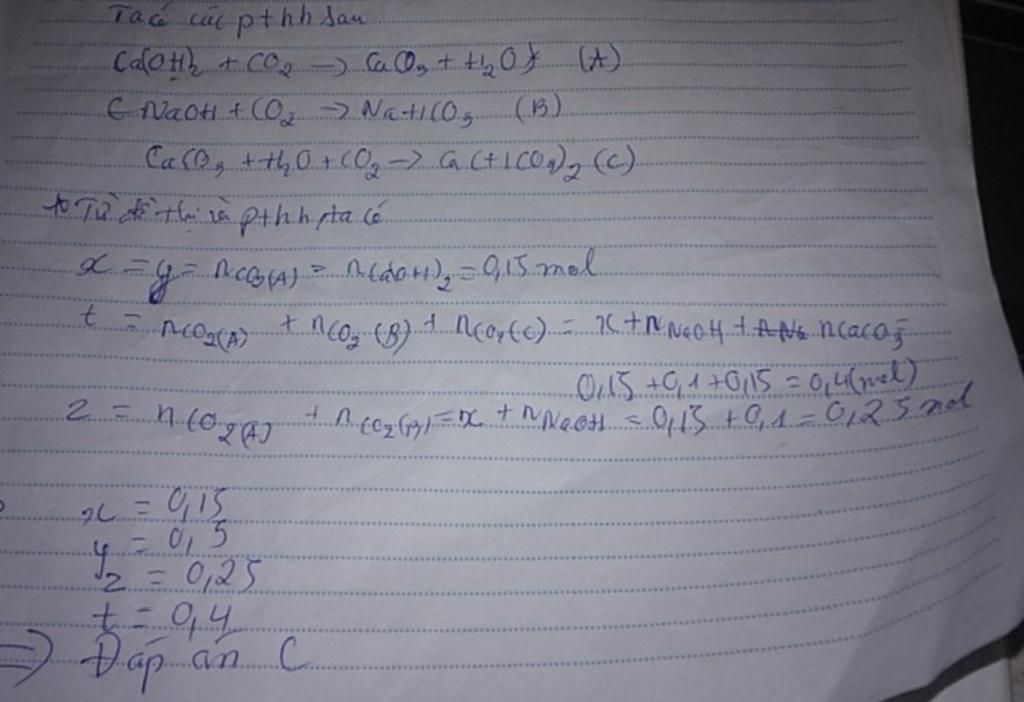 Ta có các pthh sau
Ca(OH)2 + CO2 → CaCO3 + H2O (A)
NaOH + CO2 → NaHCO3 (B)
CaCO3 + H2O + CO2 → Ca(HCO3)2 (C)
Từ đồ thị và pthh, ta có
x = y = nCO2(A) = nCa(OH)2 = 0,15 mol
t = nCO2(A) + nCO2(B) + nCO2(C) = x + nNaOH + nCaCO3 =
0,15 + 0,1 + 0,15 = 0,4 (mol)
z = nCO2(A) + nCO2(B) = x + nNaOH = 0,15 + 0,1 = 0,25 mol
x = 0,15
y = 0,5
z = 0,25
t = 0,4
=> Đáp án C